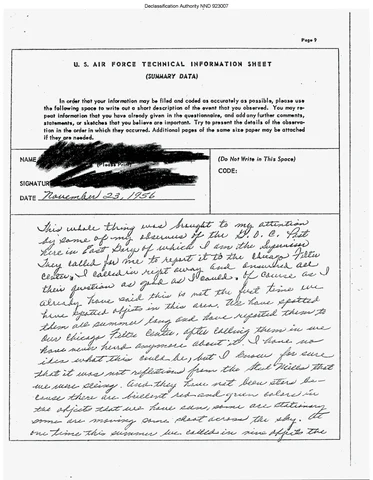 Declassification Authority NND 923007
Page 9
U. S. AIR FORCE TECHNICAL INFORMATION SHEET
(SUMMARY DATA)
In order that your information may be filed and coded as accurately as possible, please use
the following space to write out a short description of the event that you observed. You may re-
peat information that you have already given in the questionnaire, and add any further comments,
statements, or sketches that you believe are important. Try to present the details of the observa-
tion in the order in which they occurred. Additional pages of the same size paper may be attached
if they are needed.
NAME
(Please Print)
(Do Not Write in This Space)
CODE:
SIGNATUR
DATE November 23, 1956
This whole thing was brought to my attention
by some of my observers of the G.O.C. Post
here in East Gary of which I am the Supervisor
They called for me to report it to the Chicago Filter
Center. I called in right away and answered all
their question as good as I could. Of course as I
already have said this is not the first time we
have spotted objects in this area. We have spotted
them all summer long and have reported them to
our Chicago Filter Center, after calling them in we
have never heard anymore about it. I have no
idea what this could be, but I know for sure
that it was not reflections from the Steel Mills that
we were seeing. And they have not been stars be-
cause there are brilliant red and green colors in
the objects that we have seen, some are stationary
some are moving some float across the sky. At
one time this summer we called in nine objects the